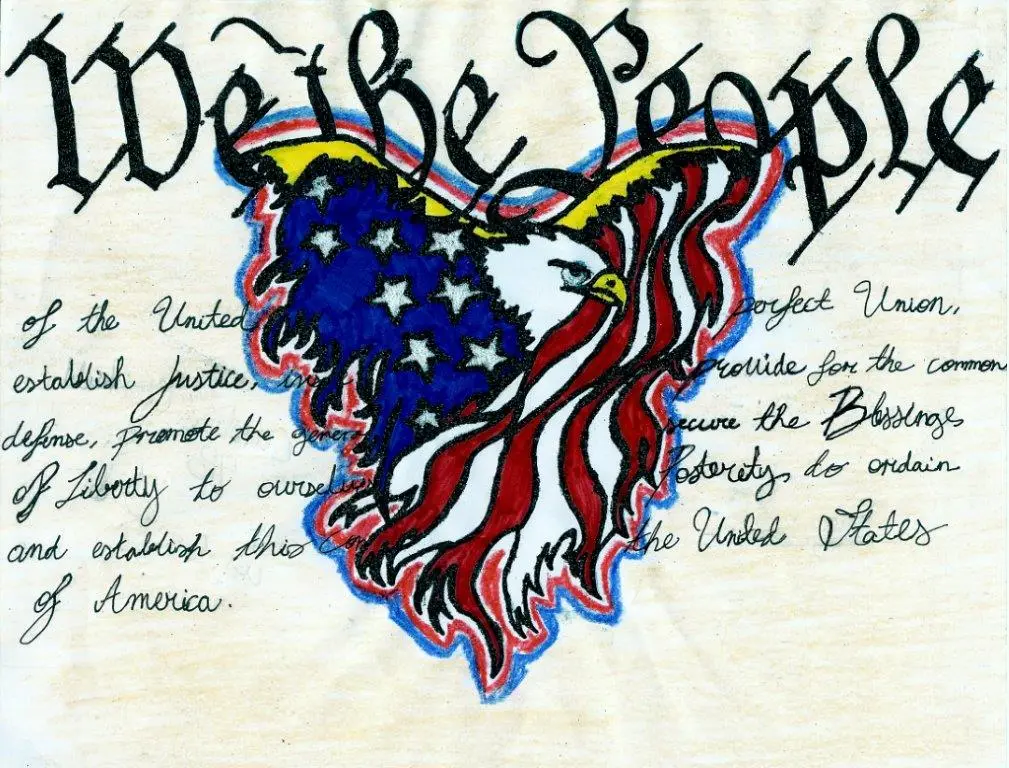 We the People
of the United perfect Union,
establish Justice, provide for the common
defense, promote the secure the Blessings
of Liberty to ourselves Posterity, do ordain
and establish this the United States
of America.